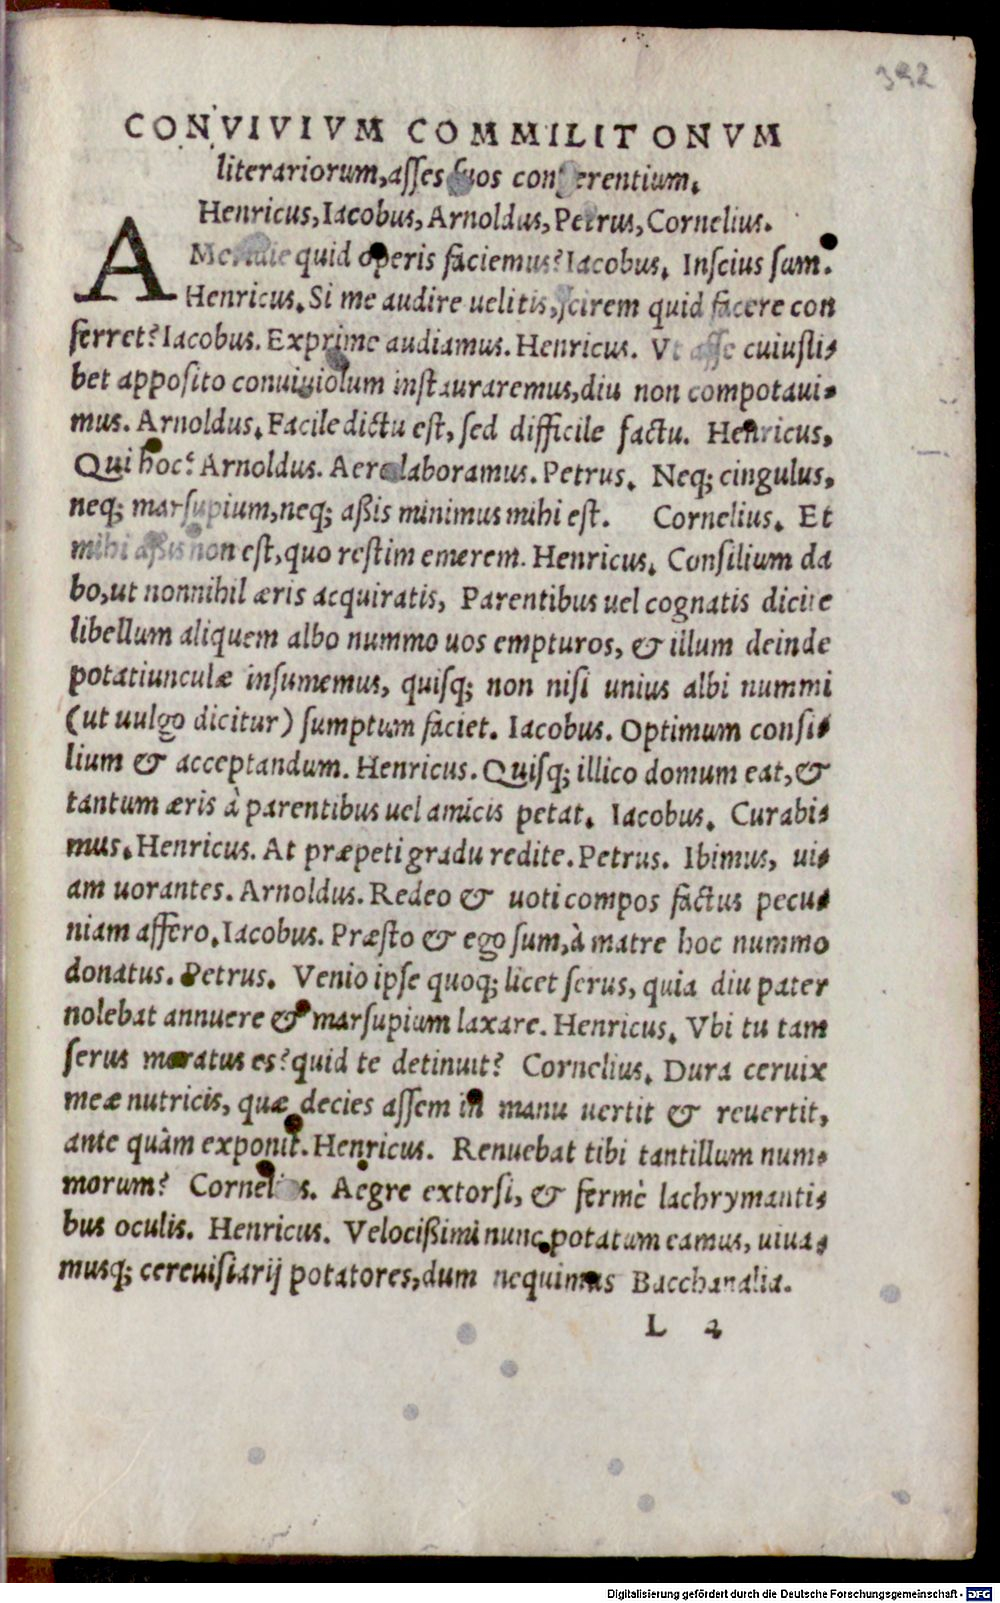 392
CONVIVIVM COMMILITONVM
literariorum, asses suos conferentium.
Henricus, Iacobus, Arnoldus, Petrus, Cornelius.
A Meridie quid operis faciemus? Iacobus. Inscius sum.
Henricus. Si me audire uelitis, scirem quid facere con
ferret? Iacobus. Exprime audiamus. Henricus. Vt asse cuiusli-
bet apposito conuiuiolum instauraremus, diu non compotaui-
mus. Arnoldus. Facile dictu est, sed difficile factu. Henricus,
Qui hoc? Arnoldus. Aere laboramus. Petrus. Neq; cingulus,
neq; marsupium, neq; aßis minimus mihi est. Cornelius. Et
mihi aßis non est, quo restim emerem. Henricus. Consilium da
bo, ut nonnihil æris acquiratis, Parentibus uel cognatis dicite
libellum aliquem albo nummo uos empturos, & illum deinde
potatiunculæ insumemus, quisq; non nisi unius albi nummi
(ut uulgo dicitur) sumptum faciet. Iacobus. Optimum consi-
lium & acceptandum. Henricus. Quisq; illico domum eat, &
tantum æris à parentibus uel amicis petat. Iacobus. Curabi-
mus. Henricus. At præpeti gradu redite. Petrus. Ibimus, ui-
am uorantes. Arnoldus. Redeo & uoti compos factus pecu-
niam affero. Iacobus. Præsto & ego sum, à matre hoc nummo
donatus. Petrus. Venio ipse quoq; licet serus, quia diu pater
nolebat annuere & marsupium laxare. Henricus. Vbi tu tam
serus moratus es? quid te detinuit? Cornelius. Dura ceruix
meæ nutricis, quæ decies assem in manu uertit & reuertit,
ante quàm exponit. Henricus. Renuebat tibi tantillum num-
morum? Cornelius. Aegre extorsi, & fermè lachrymanti-
bus oculis. Henricus. Velocißimi nunc potatum eamus, uiua-
musq; cereuisiarij potatores, dum nequimus Bacchanalia.
L 4
Digitalisierung gefördert durch die Deutsche Forschungsgemeinschaft - DFG